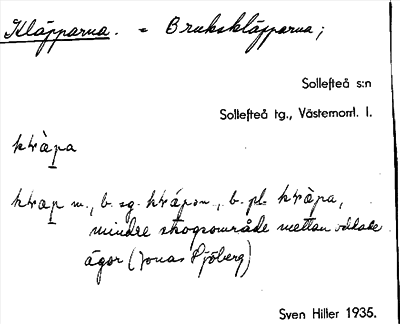 Kläpparna. = Brukskläpparna;
Sollefteå s:n
Sollefteå tg., Västernorrl. l.
klràpa
klrap m., b. sg. klrápon., b. pl. klràpa,
mindre skogsområde mellan odlade
ägor (Jonas Sjöberg)
Sven Hiller 1935.